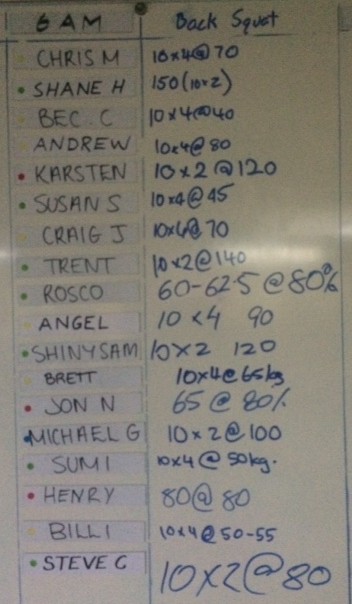 6 AM Back Squat
CHRIS M 10x4@70
SHANE H 150(10x2)
BEC. C 10x4@40
ANDREW 10x4@80
KARSTEN 10x2@120
SUSAN S 10x4@45
CRAIG J 10x4@70
TRENT 10x2@140
ROSCO 60-62.5@80%
ANGEL 10x4 90
SHINYSAM 10x2 120
BRETT 10x4@65kg
JON N 65@80%
MICHAEL G 10x2@100
SUMI 10x4@50kg.
HENRY 80@80
BILLI 10x4@50-55
STEVE C 10x2@80